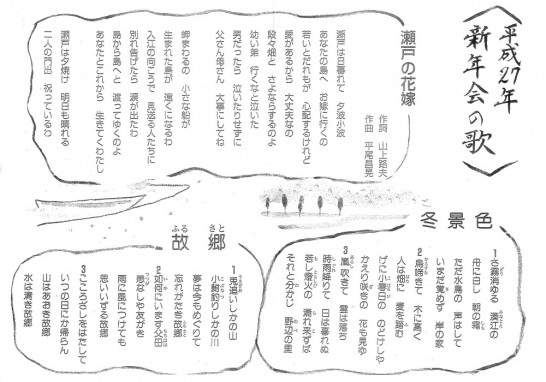 〈平成27年
新年会の歌〉
瀬戸の花嫁
作詞 山上路夫
作曲 平尾昌晃
瀬戸は日暮れて 夕波小波
あなたの島へ お嫁に行くの
若いとだれもが 心配するけれど
愛があるから 大丈夫なの
段々畑と さよならするのよ
幼い弟 行くなと泣いた
男だったら 泣いたりせずに
父さん母さん 大事にしてね
岬まわるの 小さな船が
生まれた島が 遠くになるわ
入江の向こうで 見送る人たちに
別れ告げたら 涙が出たわ
島から島へと 渡ってゆくのよ
あなたとこれから 生きてくわたし
瀬戸は夕焼け 明日も晴れる
二人の門出 祝っているわ
冬景色
1 さ霧消ゆる 湊江の
舟に白し 朝の霜
ただ水鳥の 声はして
いまだ覚めず 岸の家
2 烏啼きて 木に高く
人は畑に 麦を踏む
げに小春日の のどけしや
かえり咲きの 花も見ゆ
3 嵐吹きて 雲は落ち
時雨降りて 日は暮れぬ
若し燈火の 漏れ来ずば
それと分かじ 野辺の里
故郷
ふる さと
1 兎追いしかの山
小鮒釣りしかの川
夢は今もめぐりて
忘れがたき故郷
2 如何にいます父母
恙なしや友がき
雨に風につけても
思いいずる故郷
3 こころざしをはたして
いつの日にか帰らん
山はあおき故郷
水は清き故郷